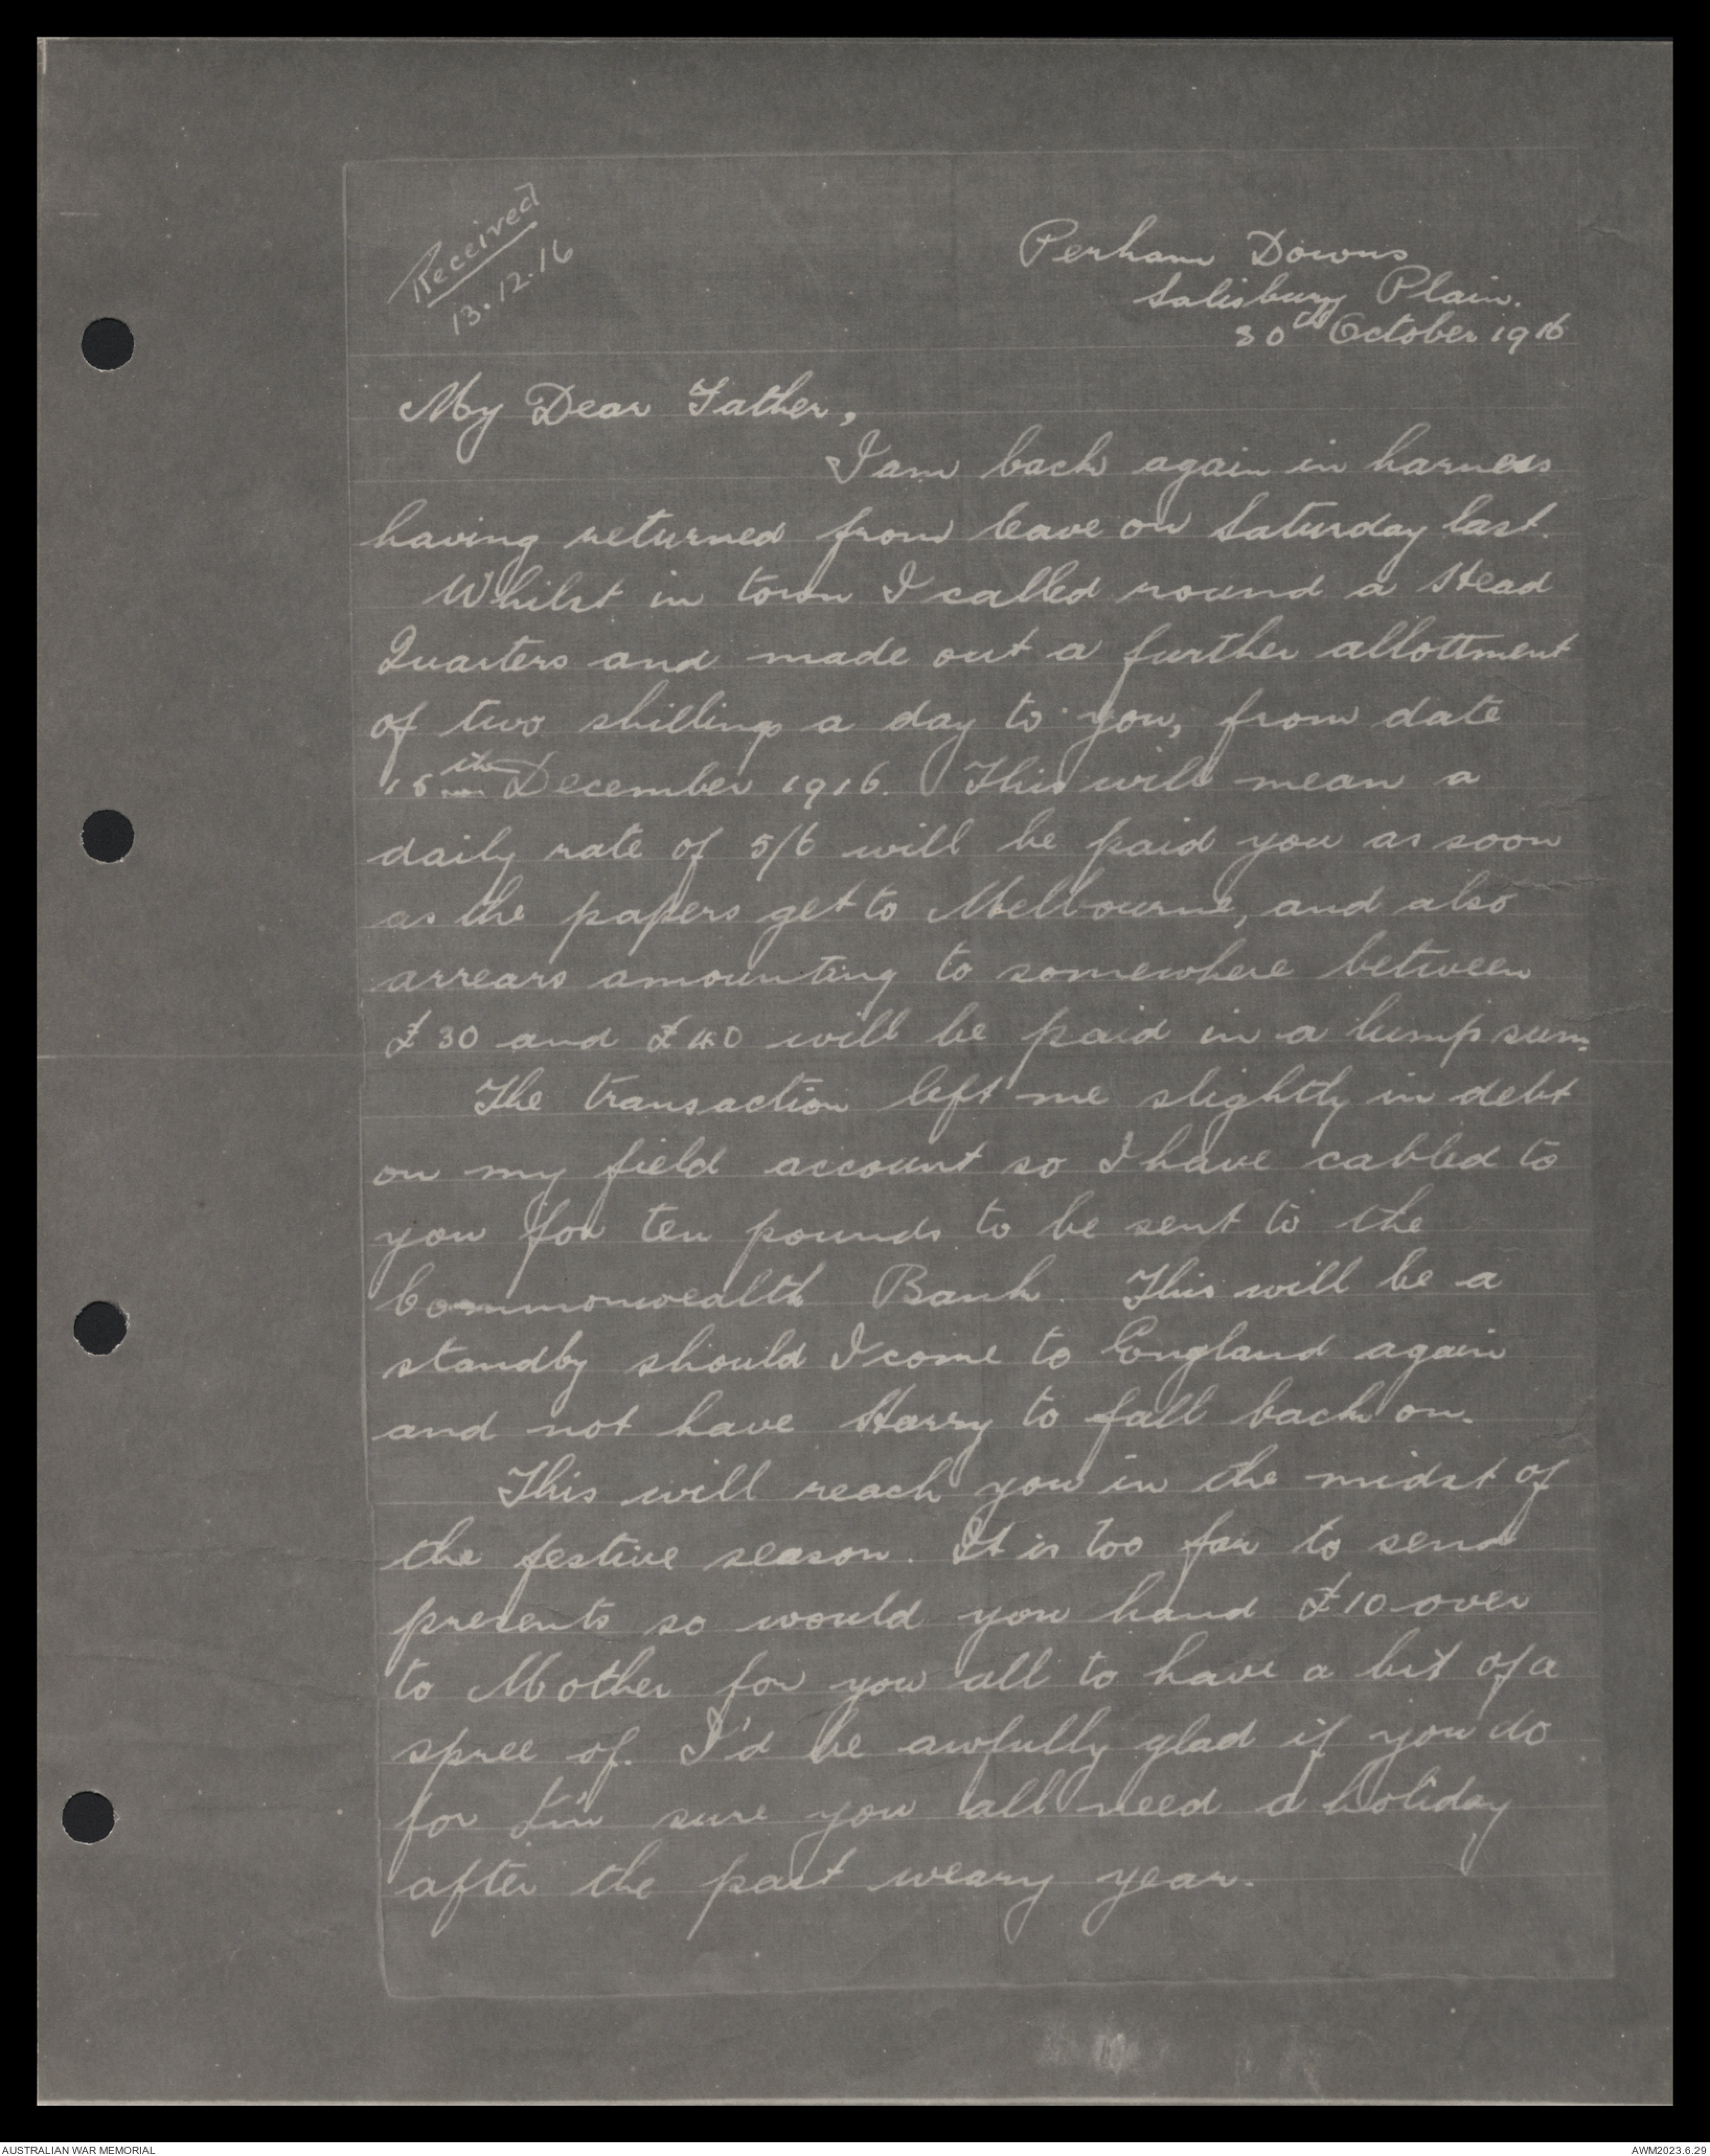 Received
13.12.16
Perham Downs
Salisbury Plain.
30th October 1916
My Dear Father,
I am back again in harness
having returned from leave on Saturday last.
Whilst in town I called round a Head
Quarters and made out a further allottment
of two shillings a day to you, from date
15th December 1916. This will mean a
daily rate of 5/6 will be paid you as soon
as the papers get to Melbourne, and also
arrears amounting to somewhere between
£30 and £40 will be paid in a lump sum.
The transaction left me slightly in debt
on my field account so I have cabled to
you for ten pounds to be sent to the
Commonwealth Bank. This will be a
standby should I come to England again
and not have Harry to fall back on.
This will reach you in the midst of
the festive season. It is too far to send
presents so would you hand £10 over
to Mother for you all to have a bit of a
spree of. I'd be awfully glad if you do
for I'm sure you all need a holiday
after the past weary year.
AUSTRALIAN WAR MEMORIAL
AWM2023.6.29